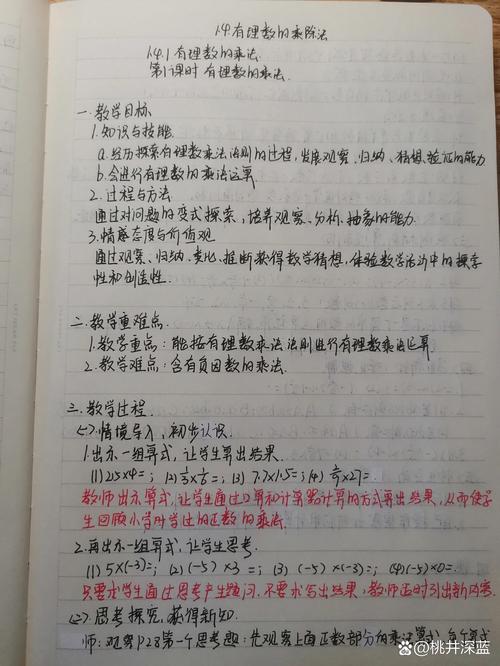 1.4有理数的乘除法
1.4.1有理数的乘法
第1课时 有理数的乘法
一.教学目标
1.知识与技能
a.经历探索有理数乘法法则的过程,发展观察、归纳、猜想、验证的能力
b.会进行有理数的乘法运算
2.过程与方法
通过对问题的变式探索,培养观察、分析、抽象的能力
3.情感态度与价值观
通过观察、归纳、类比、推断获得数学猜想,体验数学活动中的探索
性和创造性.
二.教学重难点
1.教学重点:能按有理数乘法法则进行有理数乘法运算
2.教学难点:含有负因数的乘法.
三.教学过程
(一).情境导入,初步认识
1.出示一组算式,让学生算出结果.
(1)2.5×4= ; (2) ; (3) 7.7×1.5= ; (4) ×27=
教师出示算式,让学生通过口算和计算器计算的方式算出结果,从而使学
生回顾小学时学过的正数的乘法.
2.再出示一组算式,让学生思考.
(1)5×(-3)= ; (2)(-5)×3 = ; (3)(-5)×(-3)= ; (4)(-5)×0=
只要求学生通过思考产生疑问,不要求写出结果,教师适时引出新内容.
(二).思考探究,获得新知
师:观察P28第一个思考题:先观察上面正数部分的乘法算式,每个算式
@桃井深蓝